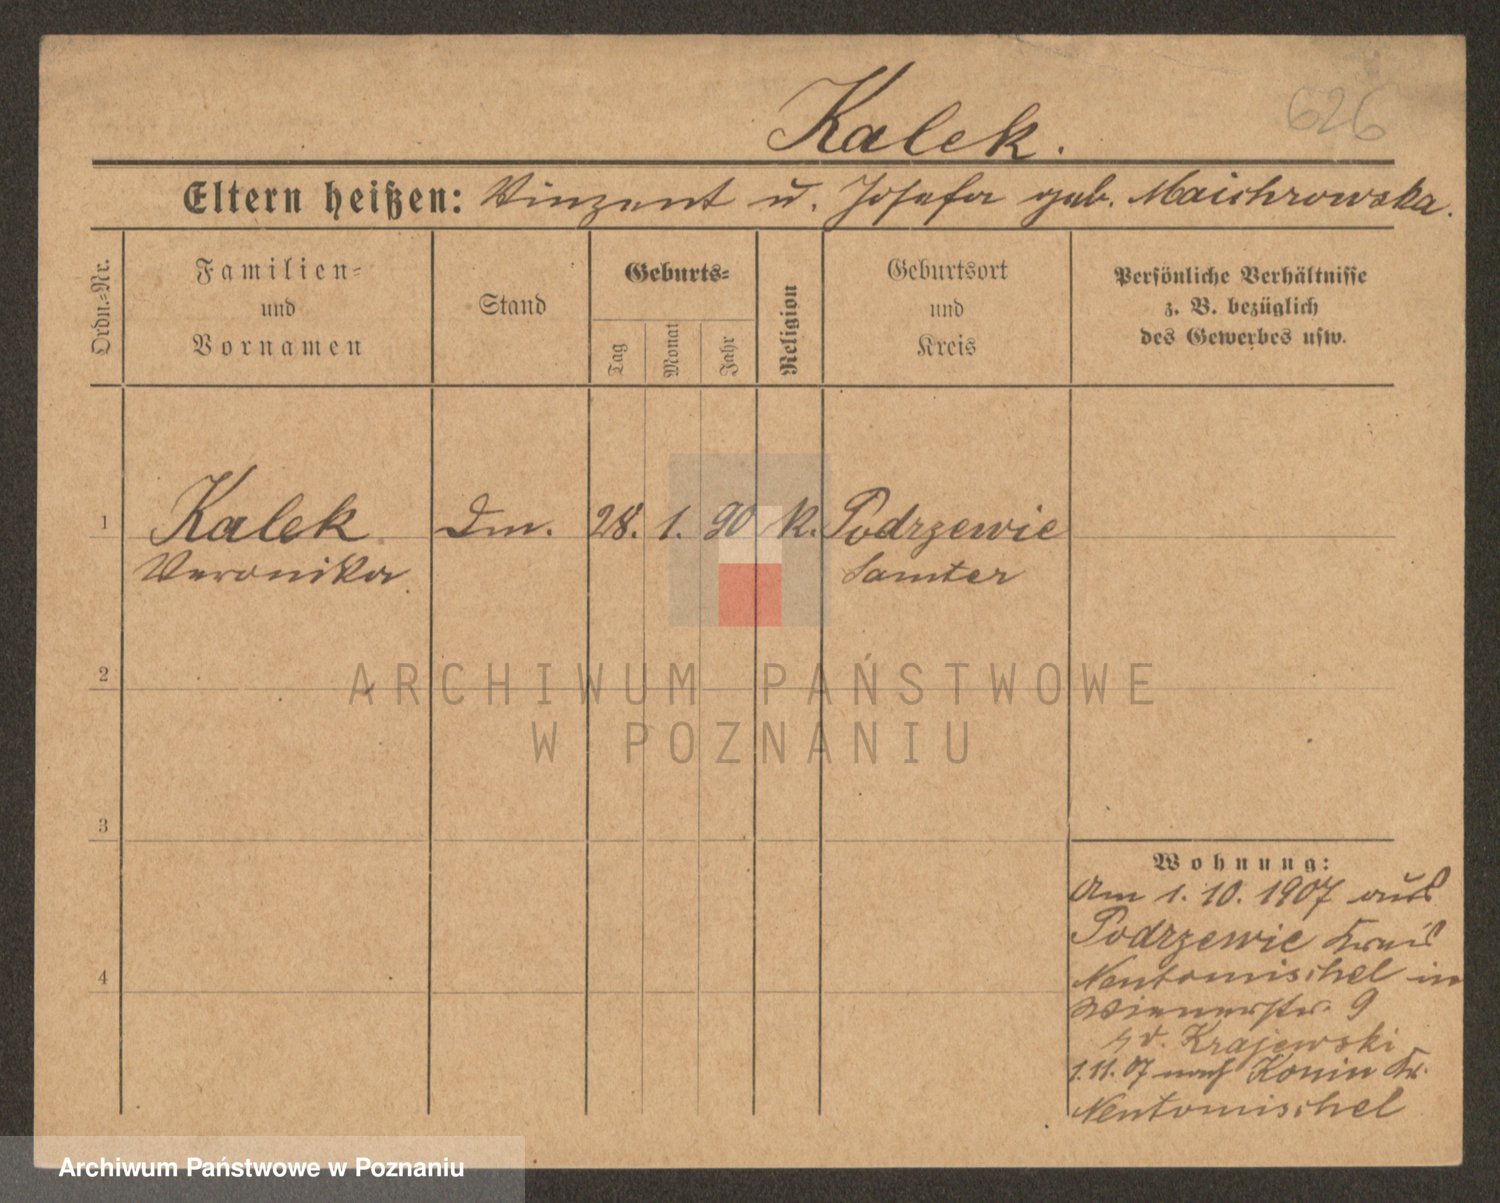 626
Kalek.
Eltern heißen: Vinzent u. Josefa geb. Maichrowska.
Ordn.-Nr.
Familien-
und
Vornamen
Stand
Geburts-
Tag
Monat
Jahr
Religion
Geburtsort
und
Kreis
Persönliche Verhältnisse
z. B. bezüglich
des Gewerbes usw.
1 Kalek Dm. 28. 1. 90 k. Podrzewie
Veronika Samter
2
3
4
Wohnung:
Am 1. 10. 1907 aus
Podrzewie Kreis
Neutomischel in
Wienerstr. 9
Krajewski
1.11.07 nach Konin Kr.
Neutomischel
ARCHIWUM PAŃSTWOWE
W POZNANIU
Archiwum Państwowe w Poznaniu